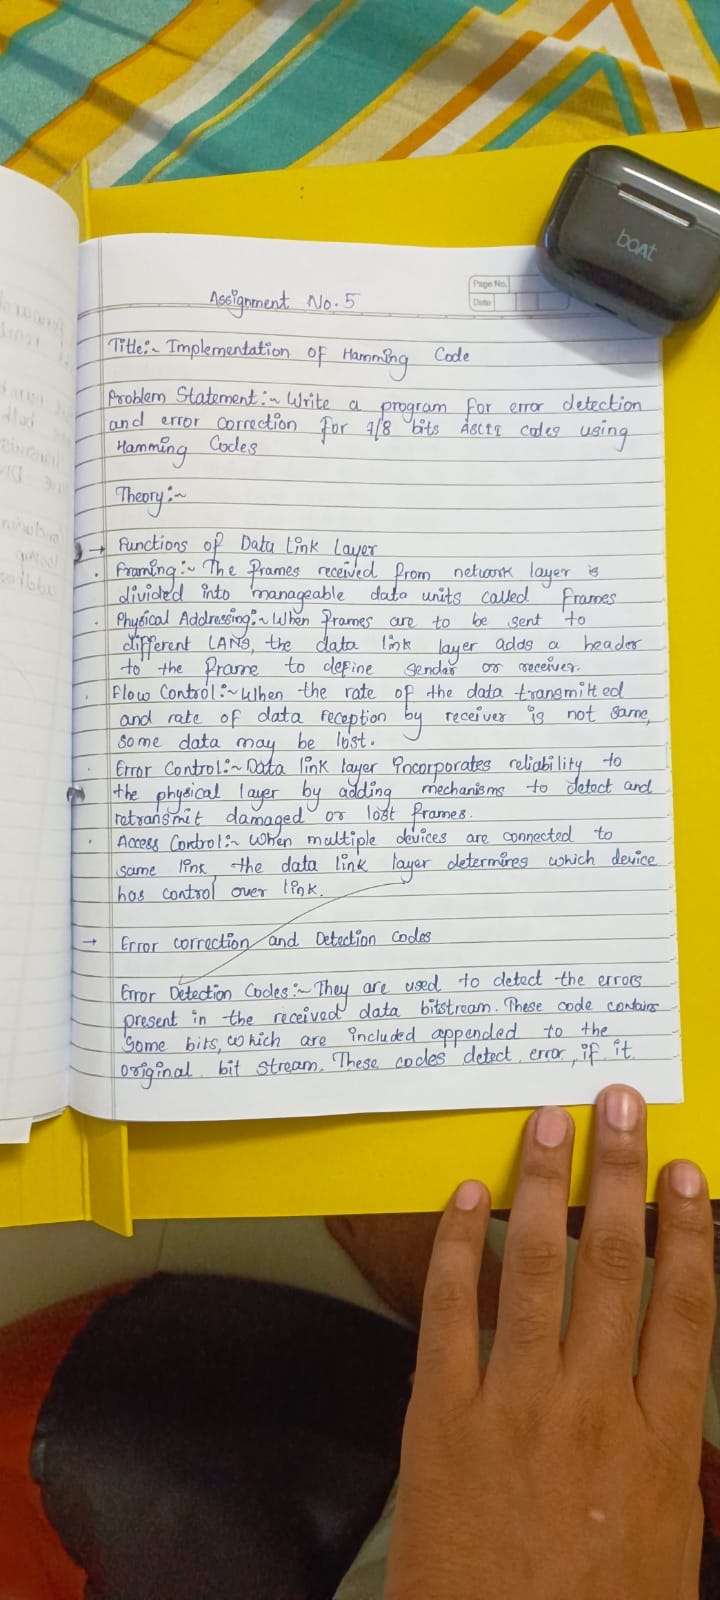 boAt
Page No.
Date
Assignment No. 5
Title:~ Implementation of Hamming Code
Problem Statement:~ Write a program for error detection
and error correction for 7/8 bits ASCII codes using
Hamming Codes
Theory:~
→ Functions of Data Link Layer
. Framing:~ The frames received from network layer is
divided into manageable data units called frames
. Physical Addressing:~ When frames are to be sent to
different LANs, the data link layer adds a header
to the frame to define sender or receiver.
. Flow Control:~ When the rate of the data transmitted
and rate of data reception by receiver is not same,
some data may be lost.
. Error Control:~ Data link layer incorporates reliability to
the physical layer by adding mechanisms to detect and
retransmit damaged or lost frames.
. Access Control:~ When multiple devices are connected to
same link, the data link layer determines which device
has control over link.
→ Error correction and Detection Codes
Error Detection Codes:~ They are used to detect the errors
present in the received data bitstream. These code contains
some bits, which are included appended to the
original bit stream. These codes detect error, if it